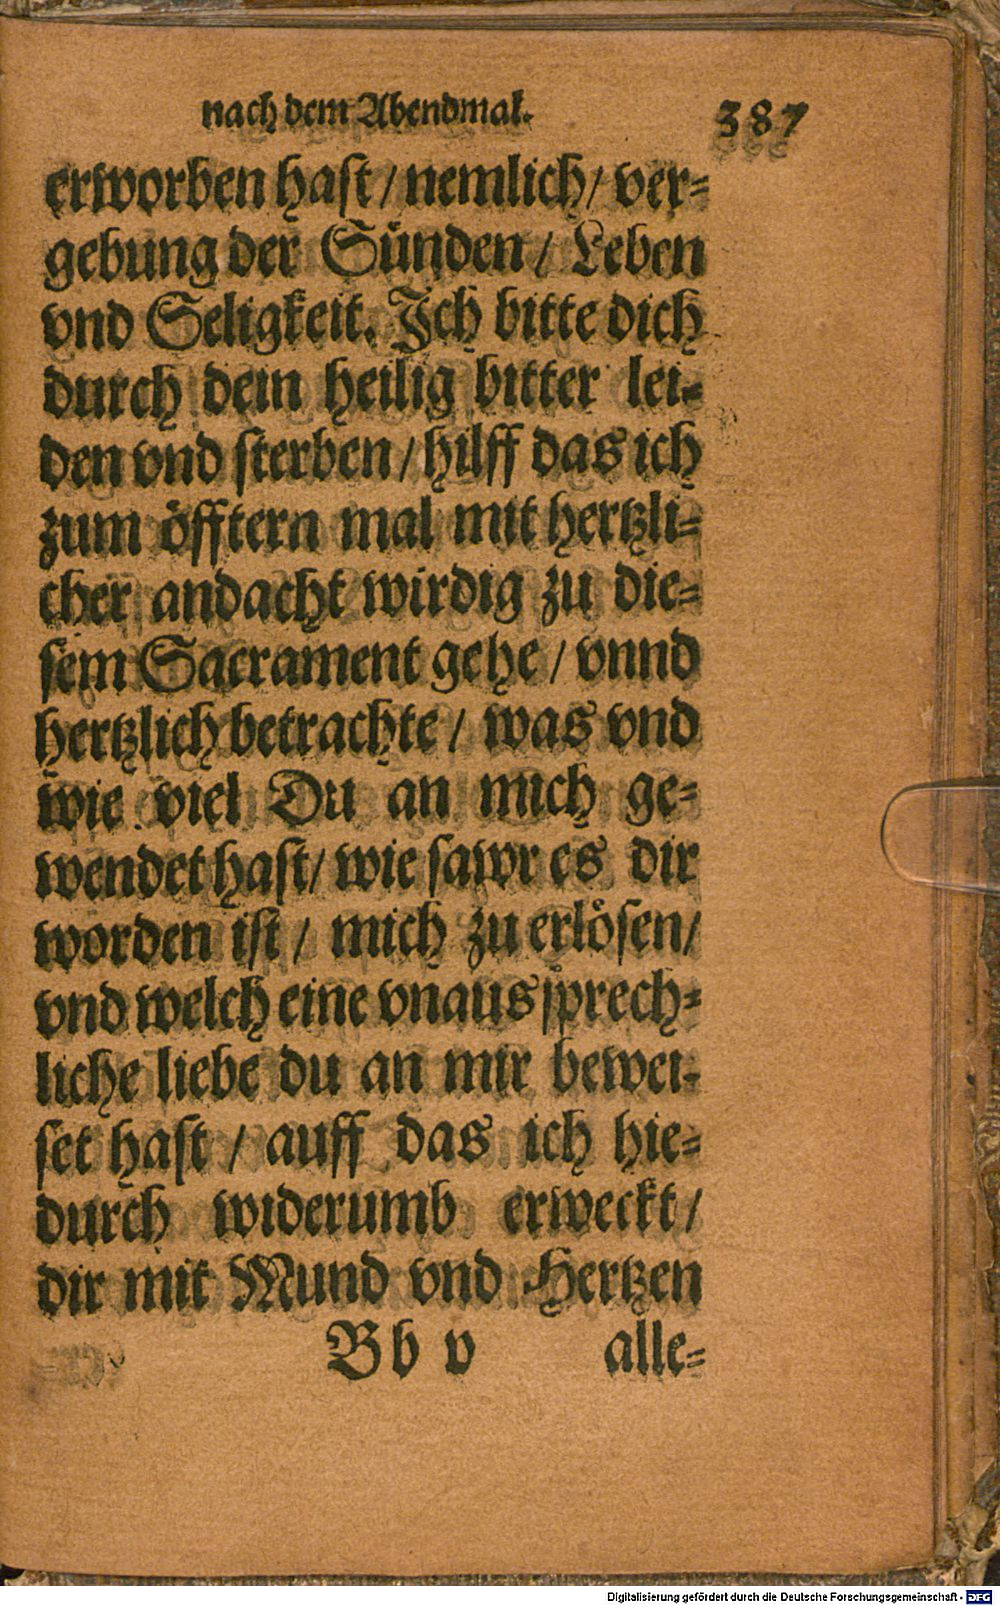 nach dem Abendmal. 387
erworben hast / nemlich / ver⸗
gebung der Sünden / Leben
vnd Seligkeit. Ich bitte dich
durch dein heilig bitter lei⸗
den vnd sterben / hilff das ich
zum öfftern mal mit hertzli⸗
cher andacht wirdig zu die⸗
sem Sacrament gehe / vnnd
hertzlich betrachte / was vnd
wie viel Du an mich ge⸗
wendet hast / wie sawr es dir
worden ist / mich zu erlösen /
vnd welch eine vnaussprech⸗
liche liebe du an mir bewei⸗
set hast / auff das ich hie⸗
durch widerumb erweckt /
dir mit Mund vnd Hertzen
Bb v alle⸗
Digitalisierung gefördert durch die Deutsche Forschungsgemeinschaft - DFG